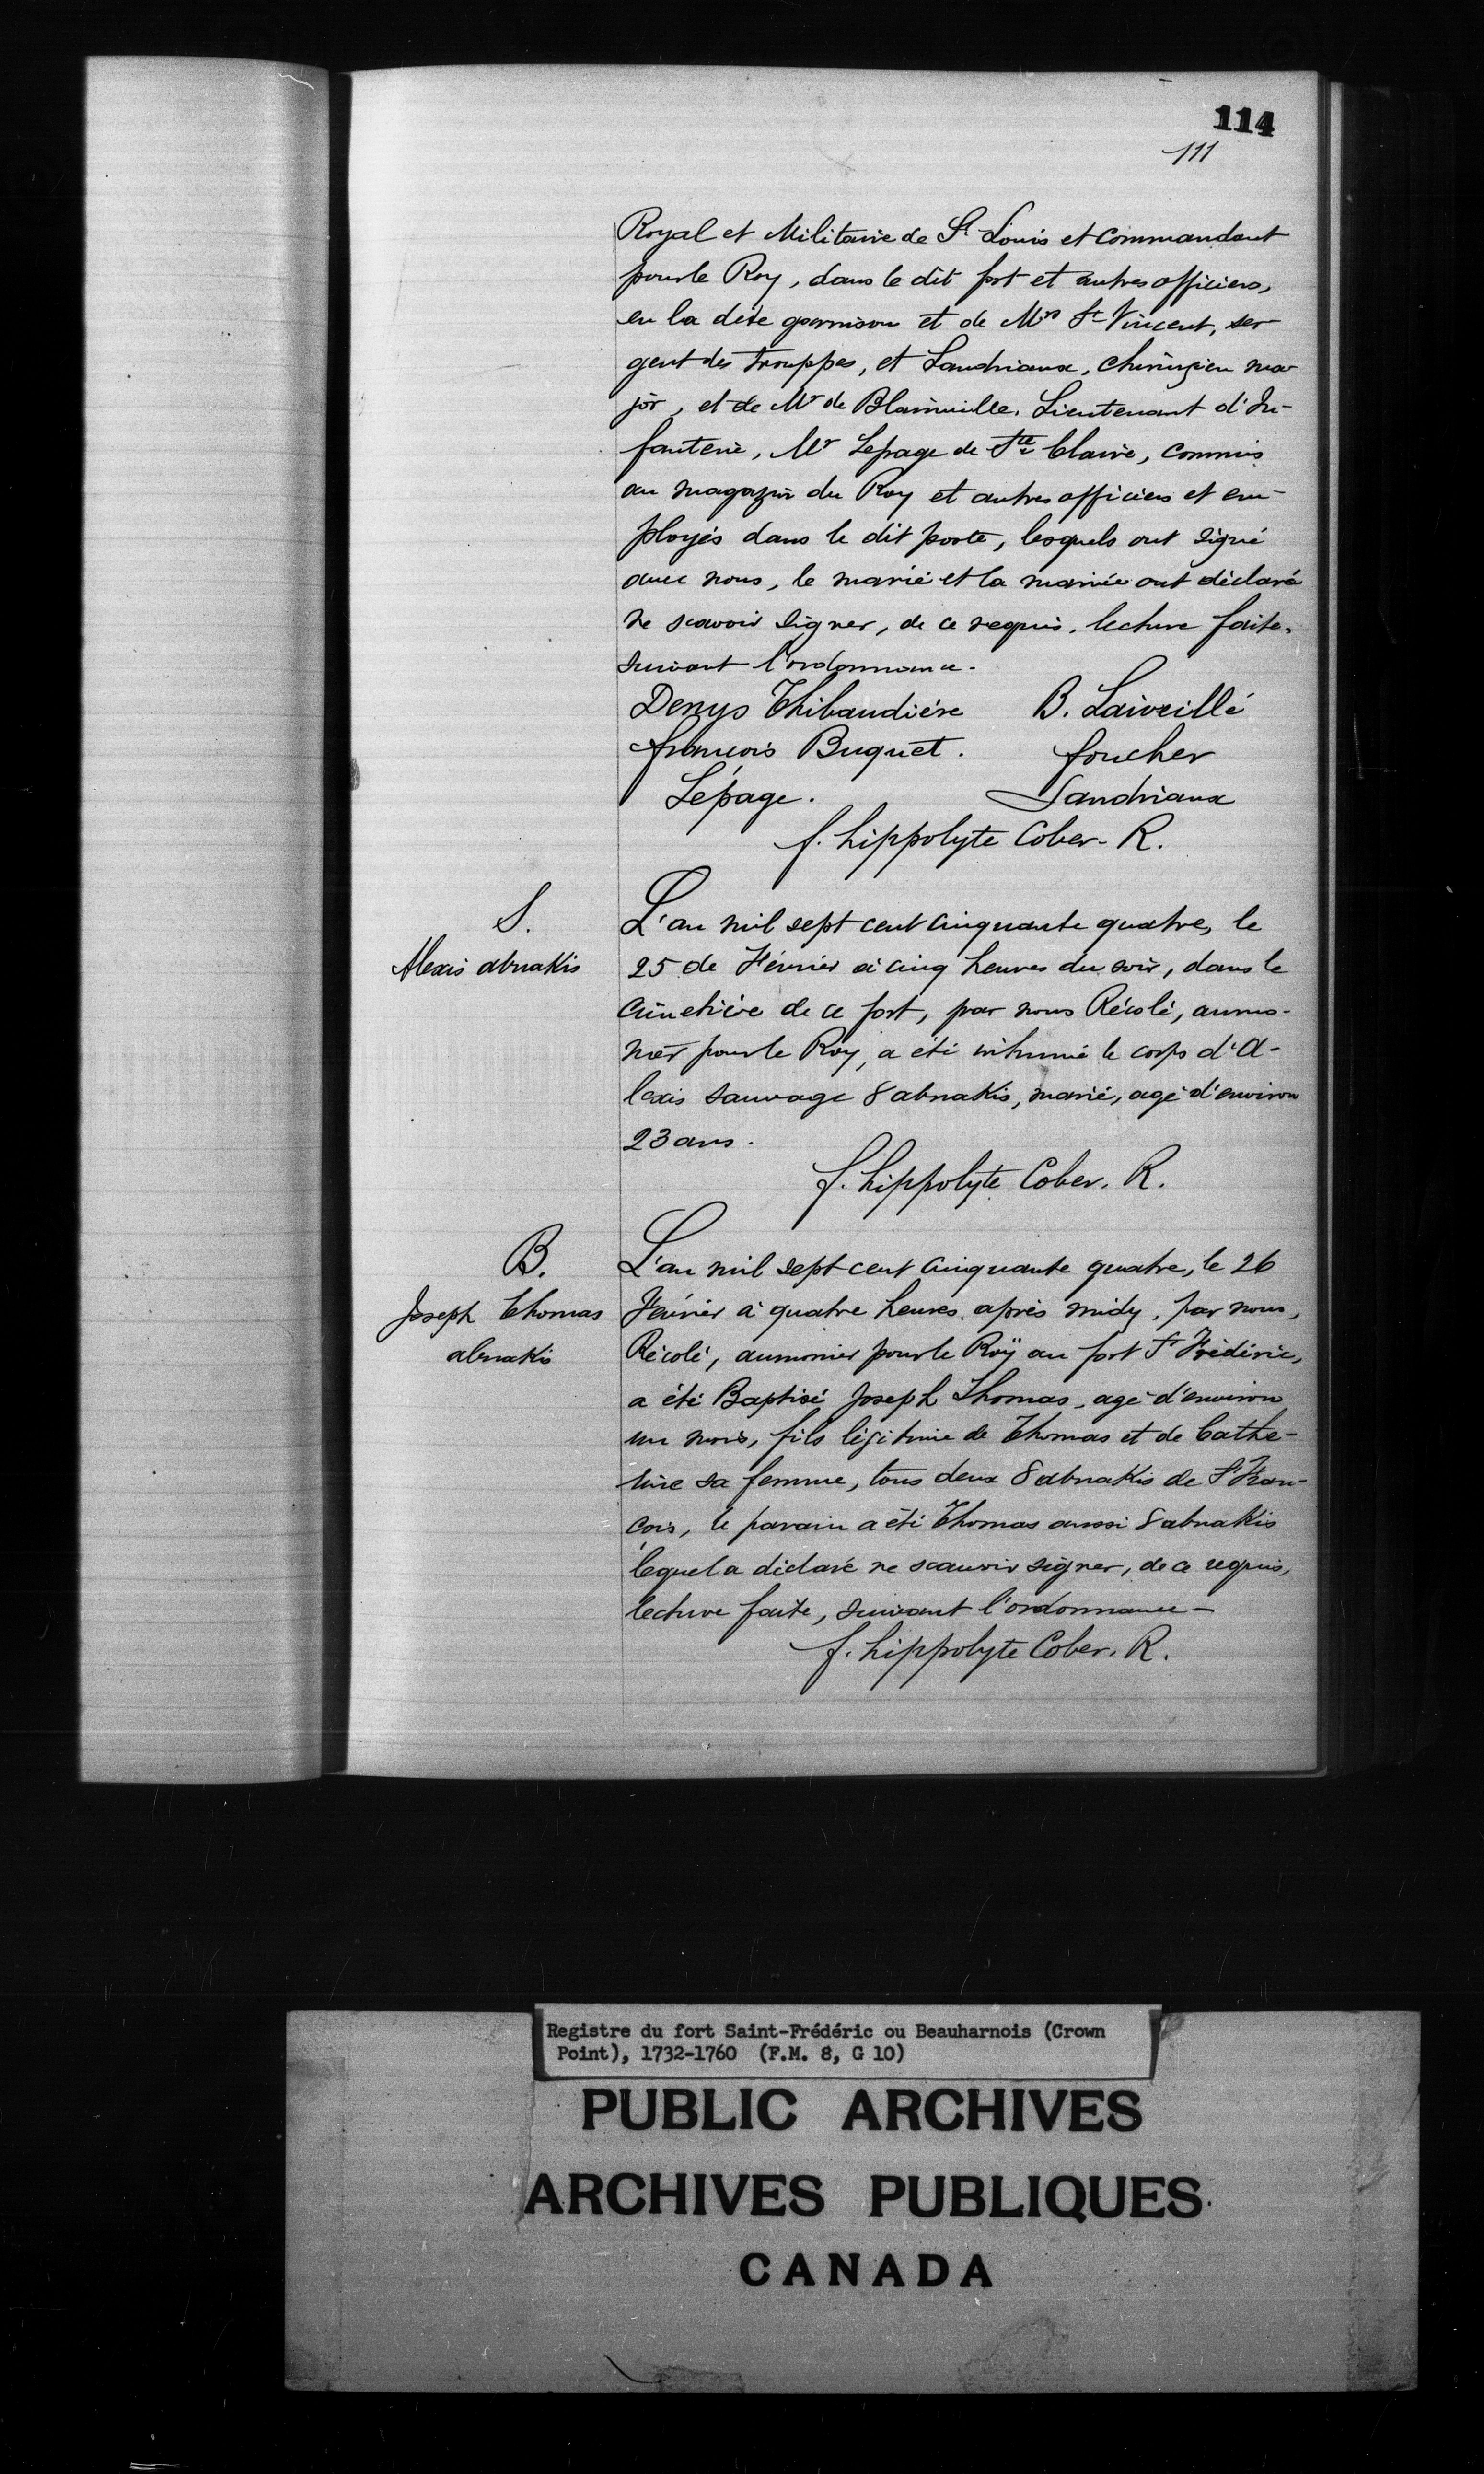 114
111
Royal et Militaire de St Louis et Commandant
pour le Roy, dans le dit fort et autres officiers,
en la dite garnison et de Mrs St Vincent, ser-
gent des trouppes, et Landriaux, chirurgien ma-
jor, et de Mr de Blainville, Lieutenant d'In-
fanterie, Mr Lepage de Ste Claire, commis
au magazin du Roy et autres officiers et em-
ployés dans le dit poste, lesquels ont signé
avec nous, le marié et la mariée ont déclaré
ne scavoir signer, de ce requis, lecture faite,
suivant l'ordonnance.
Denys Thibaudière B. Laiveillé
françois Buquet. foucher
Lépage. Landriaux
f. hippolyte Cober. R.
S.
Alexis abnakis
L'an mil sept cent cinquante quatre, le
25 de Février à cinq heures du soir, dans le
cimetière de ce fort, par nous Récolé, aumo-
nier pour le Roy, a été inhumé le corps d'A-
lexis sauvage 8abnakis, marié, agé d'environ
23 ans.
f. hippolyte Cober. R.
B.
Joseph Thomas
abnakis
L'an mil sept cent cinquante quatre, le 26
Février à quatre heures après midy, par nous,
Récolé, aumonier pour le Roÿ au fort St Frédéric,
a été Baptisé Joseph Thomas, agé d'environ
un mois, fils légitime de Thomas et de Cathe-
rine sa femme, tous deux 8abnakis de St Fran-
çois, le parain a été Thomas aussi 8abnakis
lequel a déclaré ne scauvoir signer, de ce requis,
lecture faite, suivant l'ordonnance -
f. hippolyte Cober. R.
Registre du fort Saint-Frédéric ou Beauharnois (Crown
Point), 1732-1760 (F.M. 8, G 10)
PUBLIC ARCHIVES
ARCHIVES PUBLIQUES
CANADA